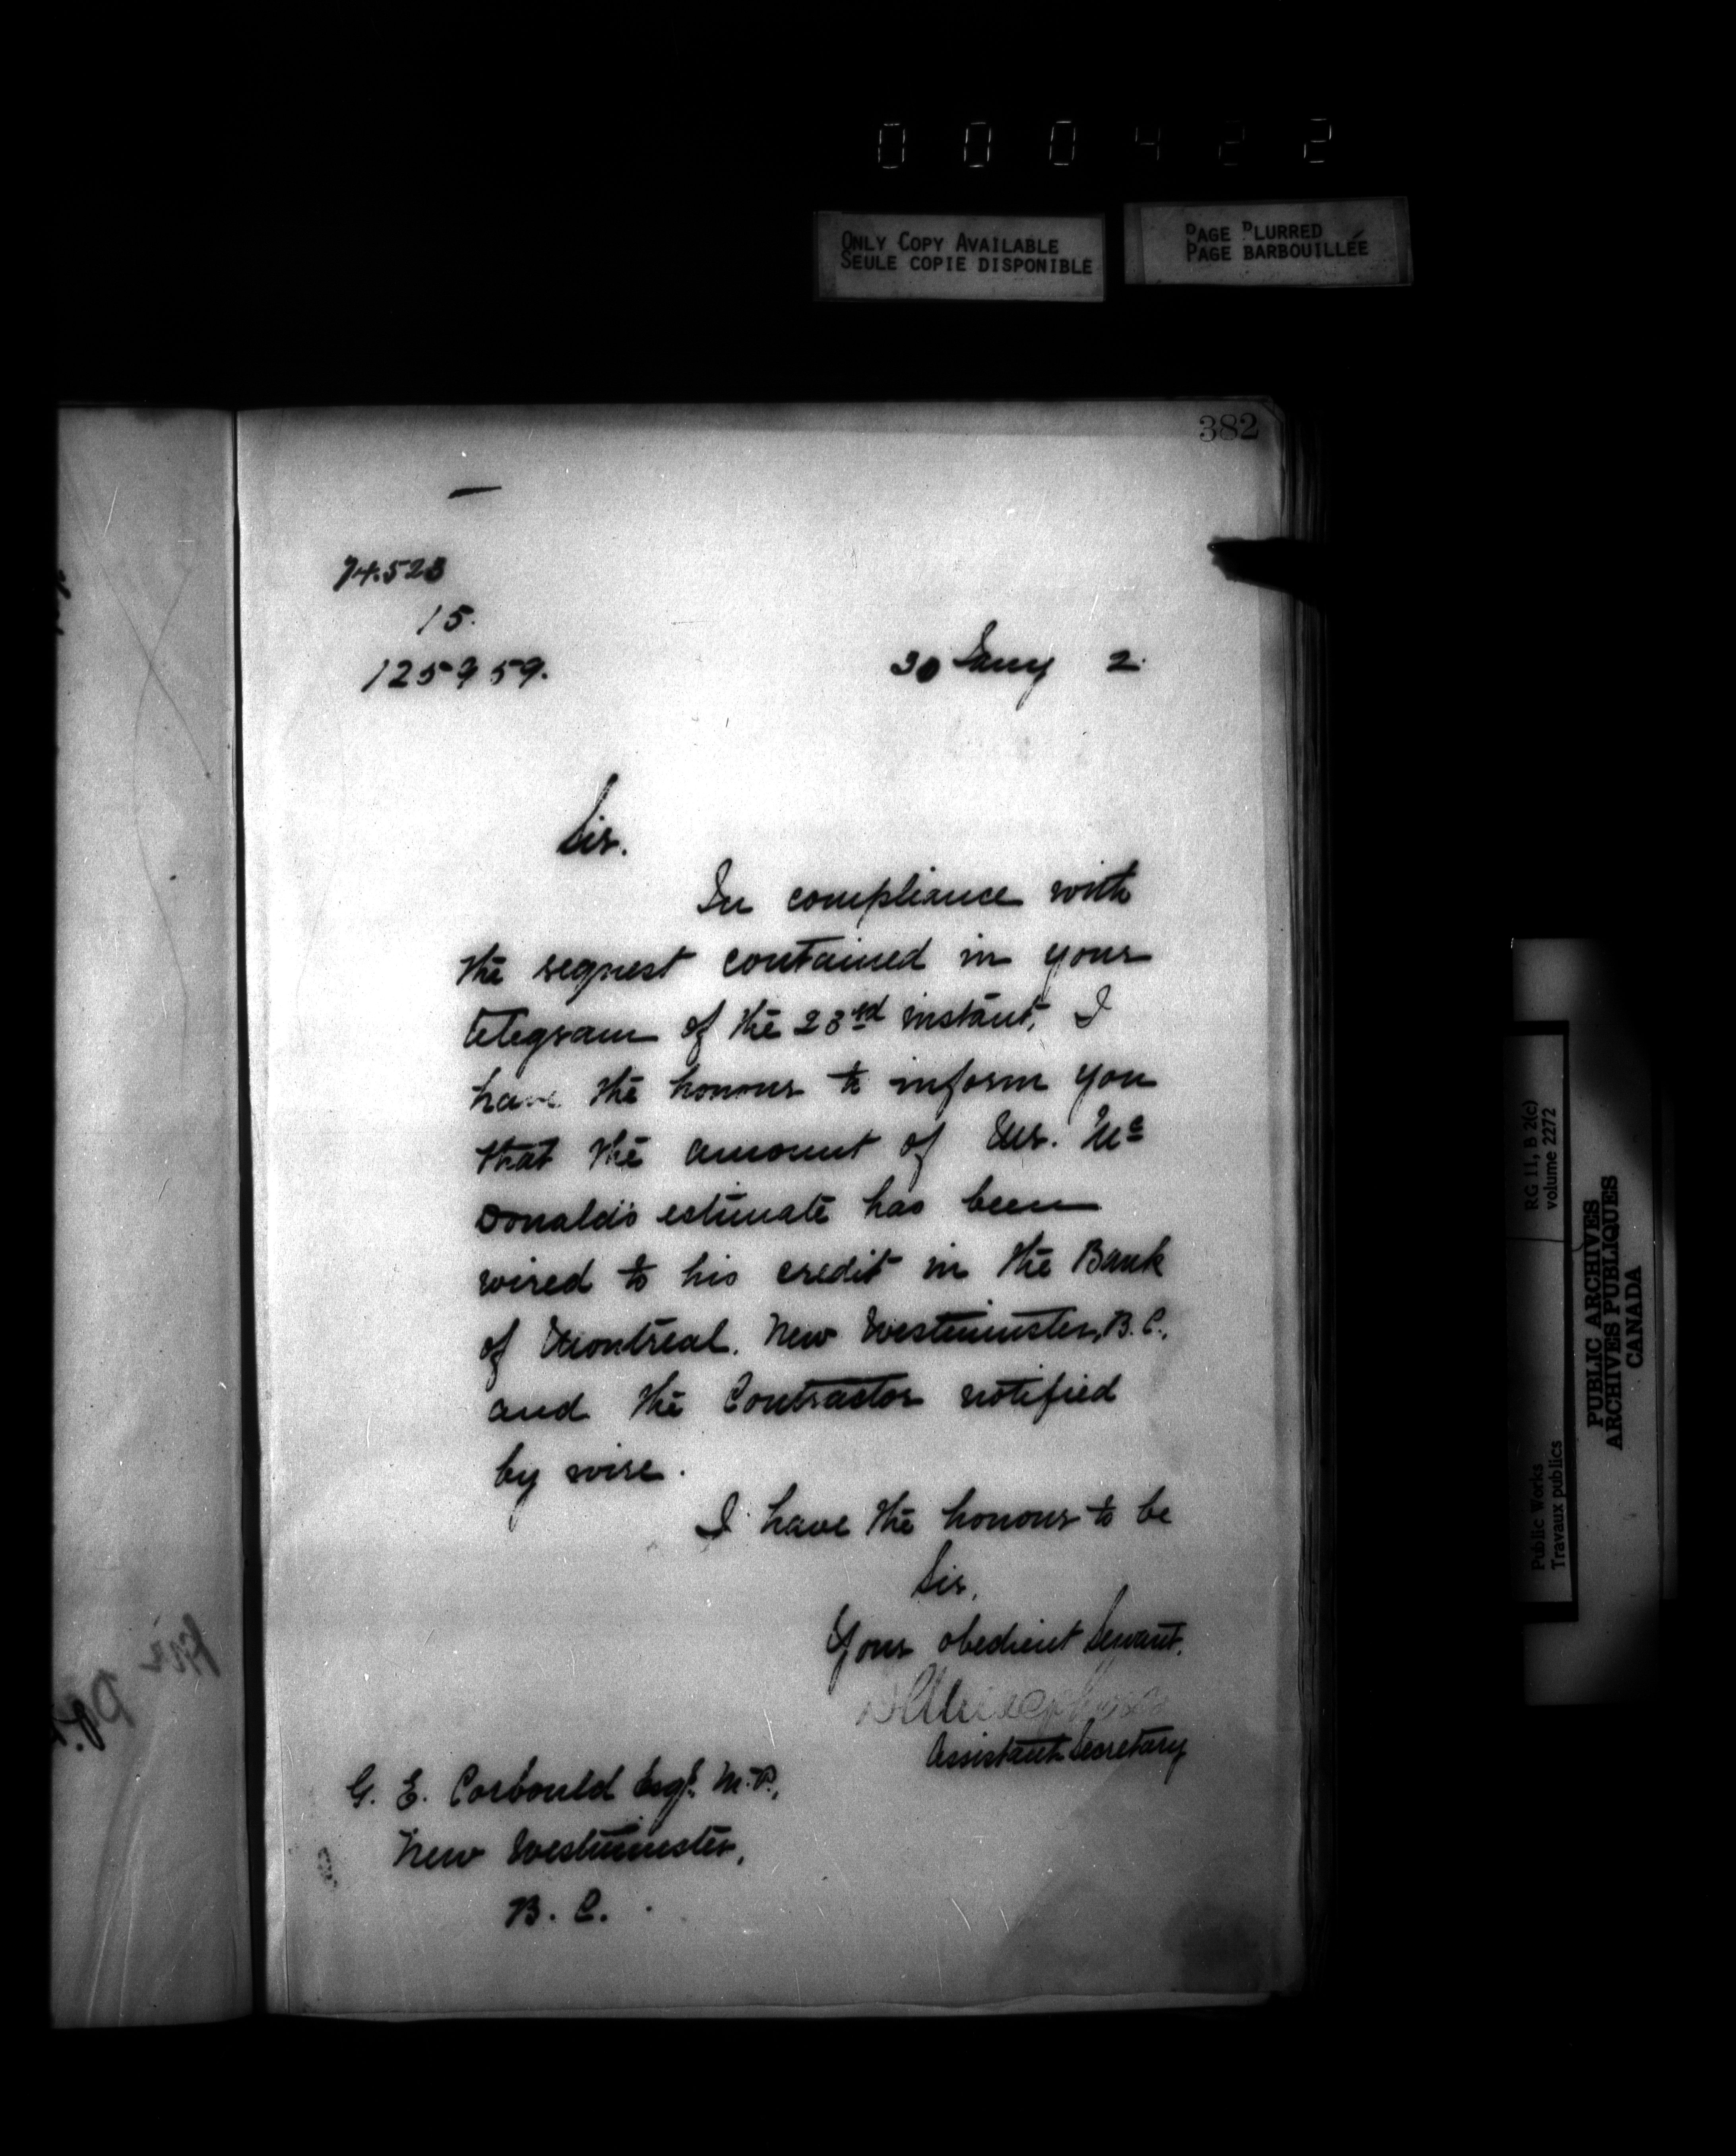 000422
ONLY COPY AVAILABLE
SEULE COPIE DISPONIBLE
PAGE BLURRED
PAGE BARBOUILLÉE
382
74.523
15.
125959.
30 Jany 2.
Sir.
In compliance with
the request contained in your
telegram of the 23rd instant, I
have the honour to inform you
that the amount of Mr. Mc
Donald's estimate has been
wired to his credit in the Bank
of Montreal. New Westminster, B.C.,
and the Contractor notified
by wire.
I have the honour to be
Sir,
Your obedient Servant.
Assistant Secretary
G. E. Corbould Esqr. M.P.,
New Westminster,
B. C.
Public Works
Travaux publics
RG 11, B 2(c)
volume 2272
PUBLIC ARCHIVES
ARCHIVES PUBLIQUES
CANADA